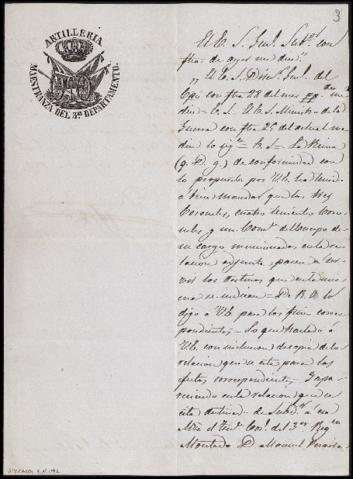 3
ARTILLERIA
MAESTRANZA DEL 3er DEPARTAMENTO.
El E. S. Gral. Subor. con
fha. de ayer me dice:
"El E. S. Direr. Gral. del
Cpo. con fha. 28 del mes ppdo. me
dice = E. S. = El E. S. Ministro de la
Guerra con fha. 25 del actual me
dice lo sigte. = E. S. = La Reina
(q. D. g.) de conformidad con
lo propuesto por V.E. ha tenido
á bien mandar que los tres
Coroneles, cuatro tenientes Coro-
neles y un Comte. del Cuerpo de
su cargo mencionados en la re-
lacion adjunta, pasen a ser-
vir los destinos que en la mis-
ma se indican = De R. O. lo
digo a V.E. para los fines corres-
pondientes = Lo que traslado á
V.E. con inclusion de copia de la
relacion que se cita para los
efectos correspondientes. Y apa-
reciendo en la relacion que se
cita destinado de Subdr. a esa
Mza. el Tente. Corl. del 3er Regto.
Montado D. Manuel